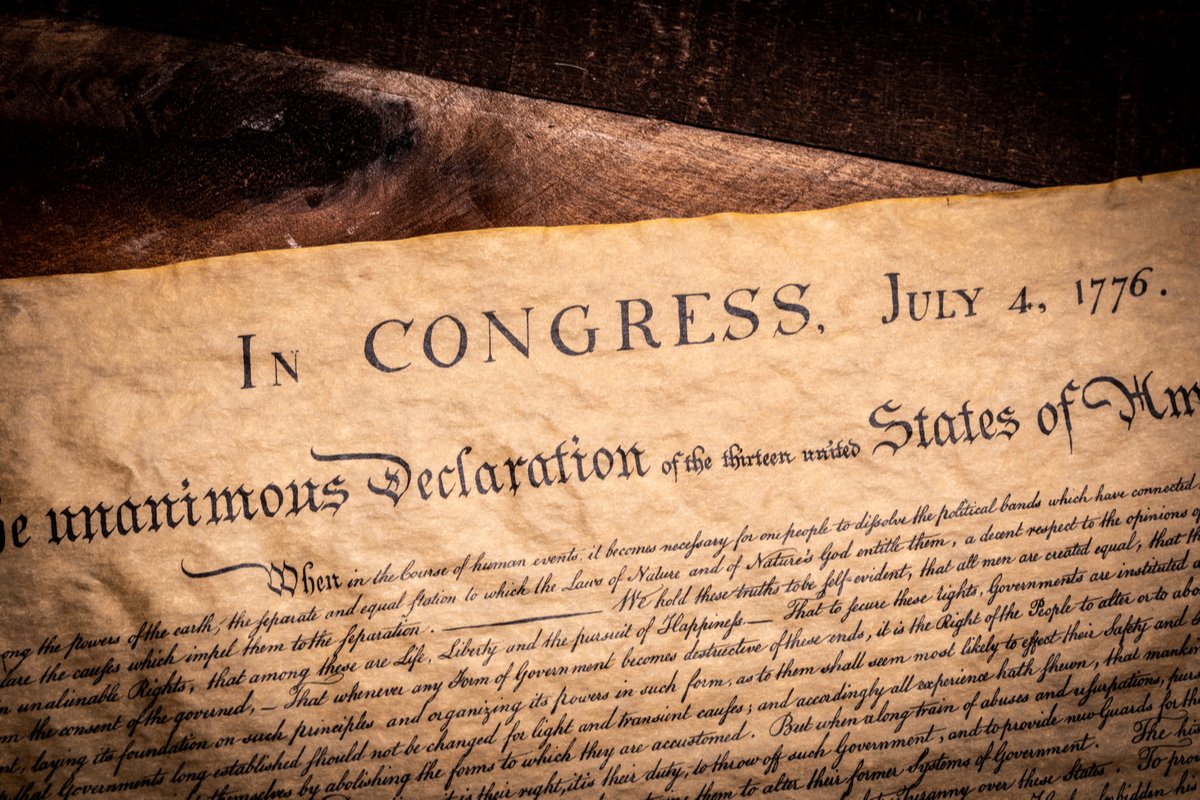 In CONGRESS, July 4, 1776.
he unanimous Declaration of the thirteen united States of Am
When in the Course of human events, it becomes necessary for one people to dissolve the political bands which have connected
ong the powers of the earth, the separate and equal station to which the Laws of Nature and of Nature's God entitle them, a decent respect to the opinions of
lare the causes which impel them to the separation. ——— We hold these truths to be self-evident, that all men are created equal, that th
n unalienable Rights, that among these are Life, Liberty and the pursuit of Happiness.— That to secure these rights, Governments are instituted a
m the consent of the governed, — That whenever any Form of Government becomes destructive of these ends, it is the Right of the People to alter or to abo
nt, laying its foundation on such principles and organizing its powers in such form, as to them shall seem most likely to effect their Safety and
that Governments long established should not be changed for light and transient causes; and accordingly all experience hath shewn, that mankin
themselves by abolishing the forms to which they are accustomed. But when a long train of abuses and usurpations, pur
it is their right, it is their duty, to throw off such Government, and to provide new Guards for th
them to alter their former Systems of Government. The his
Tyranny over these States. To pro
forbidden his